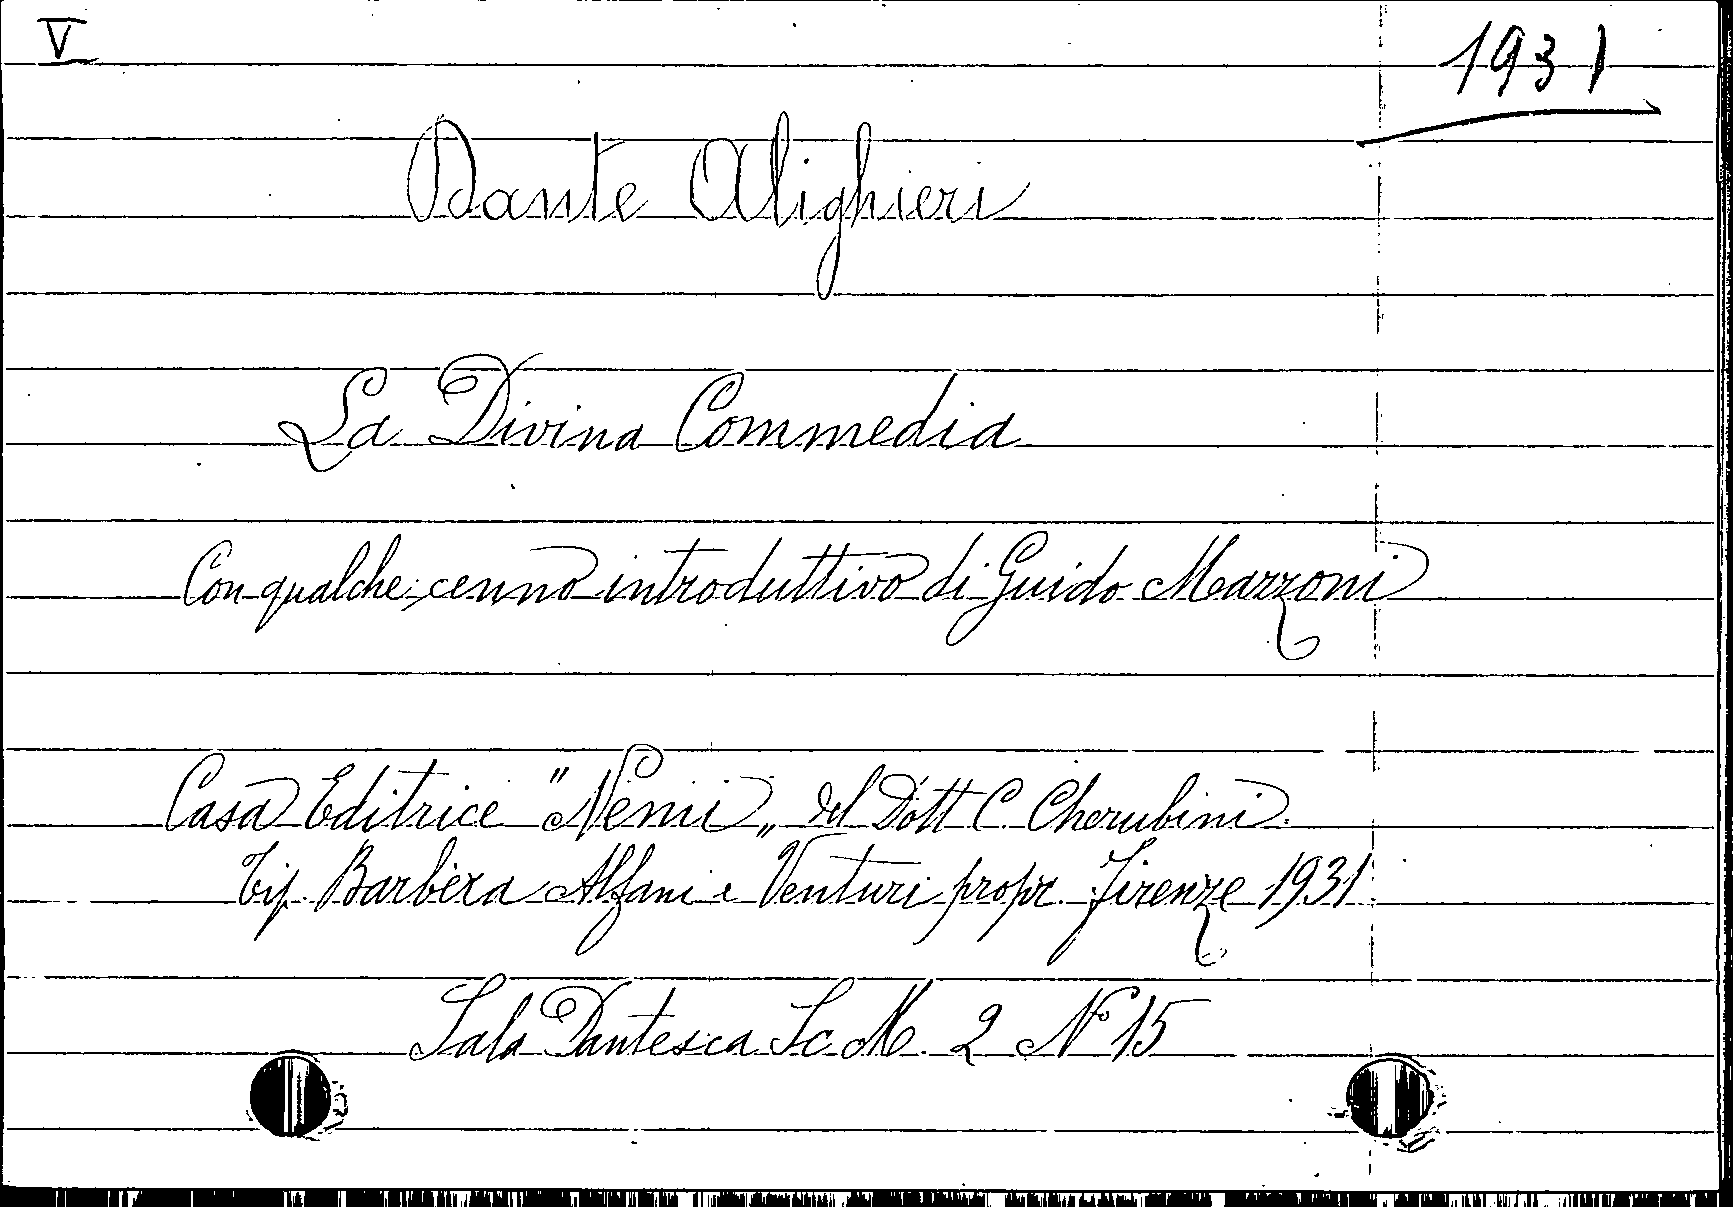 V
1931
Dante Alighieri
La Divina Commedia
Con qualche cenno introduttivo di Guido Mazzoni
Casa Editrice "Nemi„ del Dott C. Cherubini.
Tip. Barbèra Alfani e Venturi propr. Firenze 1931.
Sala Dantesca Sc. M. 2 N° 15